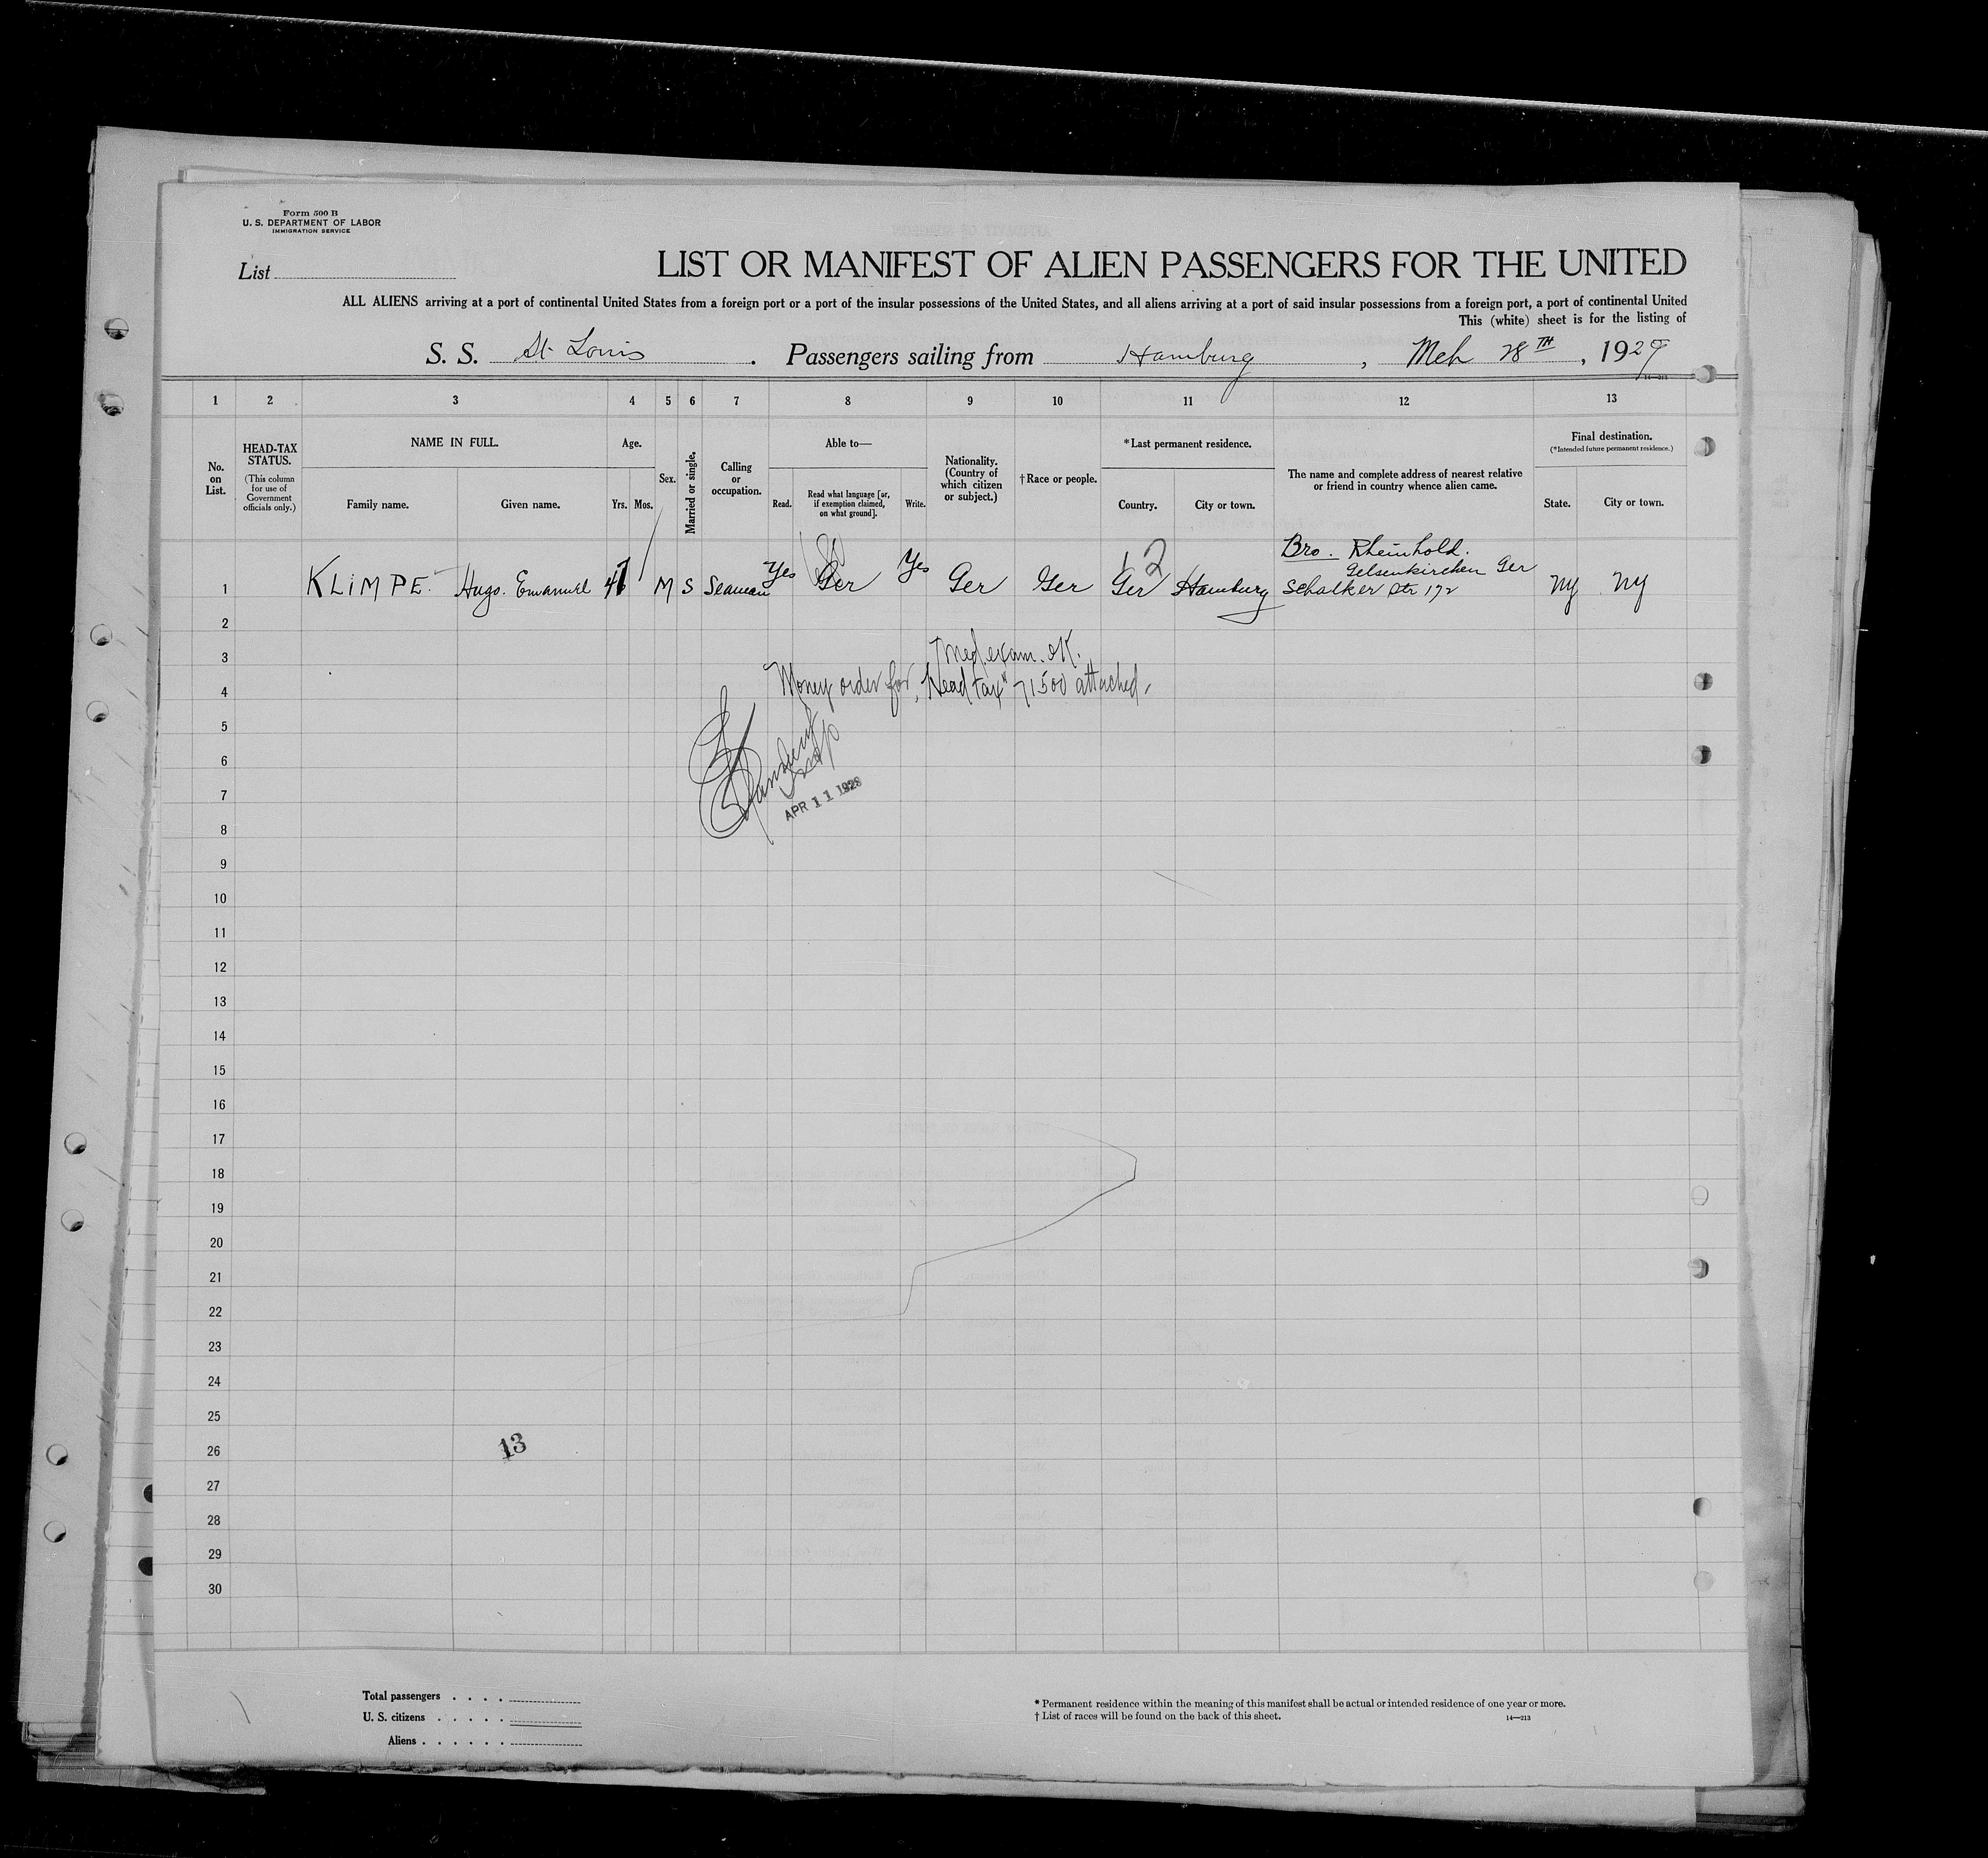 Form 500 B
U. S. DEPARTMENT OF LABOR
IMMIGRATION SERVICE
List
LIST OR MANIFEST OF ALIEN PASSENGERS FOR THE UNITED
ALL ALIENS arriving at a port of continental United States from a foreign port or a port of the insular possessions of the United States, and all aliens arriving at a port of said insular possessions from a foreign port, a port of continental United
This (white) sheet is for the listing of
S. S. St Louis . Passengers sailing from Hamburg , Mch 28TH , 1929
14—213
1 2 3 4 5 6 7 8 9 10 11 12 13
No. on List.
HEAD-TAX STATUS.
(This column for use of Government officials only.)
NAME IN FULL.
Family name. Given name.
Age.
Yrs. Mos.
Sex.
Married or single.
Calling or occupation.
Able to—
Read. Read what language [or, if exemption claimed, on what ground]. Write.
Nationality. (Country of which citizen or subject.)
†Race or people.
*Last permanent residence.
Country. City or town.
The name and complete address of nearest relative or friend in country whence alien came.
Final destination.
(*Intended future permanent residence.)
State. City or town.
Bro. Rheinhold.
Gelsenkirchen Ger
1 KLIMPE Hugo. Emanuel M S Seaman Yes Ger Yes Ger Ger Ger Hamburg Schalker Str 172 NY NY
12
2
3 Med. exam. OK.
4 Money order for "Head tax" 71500 attached
5
6
7
APR 11 1929
8
9
10
11
12
13
14
15
16
17
18
19
20
21
22
23
24
25
26
13
27
28
29
30
Total passengers . . . .
U. S. citizens . . . . .
Aliens . . . . . .
* Permanent residence within the meaning of this manifest shall be actual or intended residence of one year or more.
† List of races will be found on the back of this sheet.
14—213